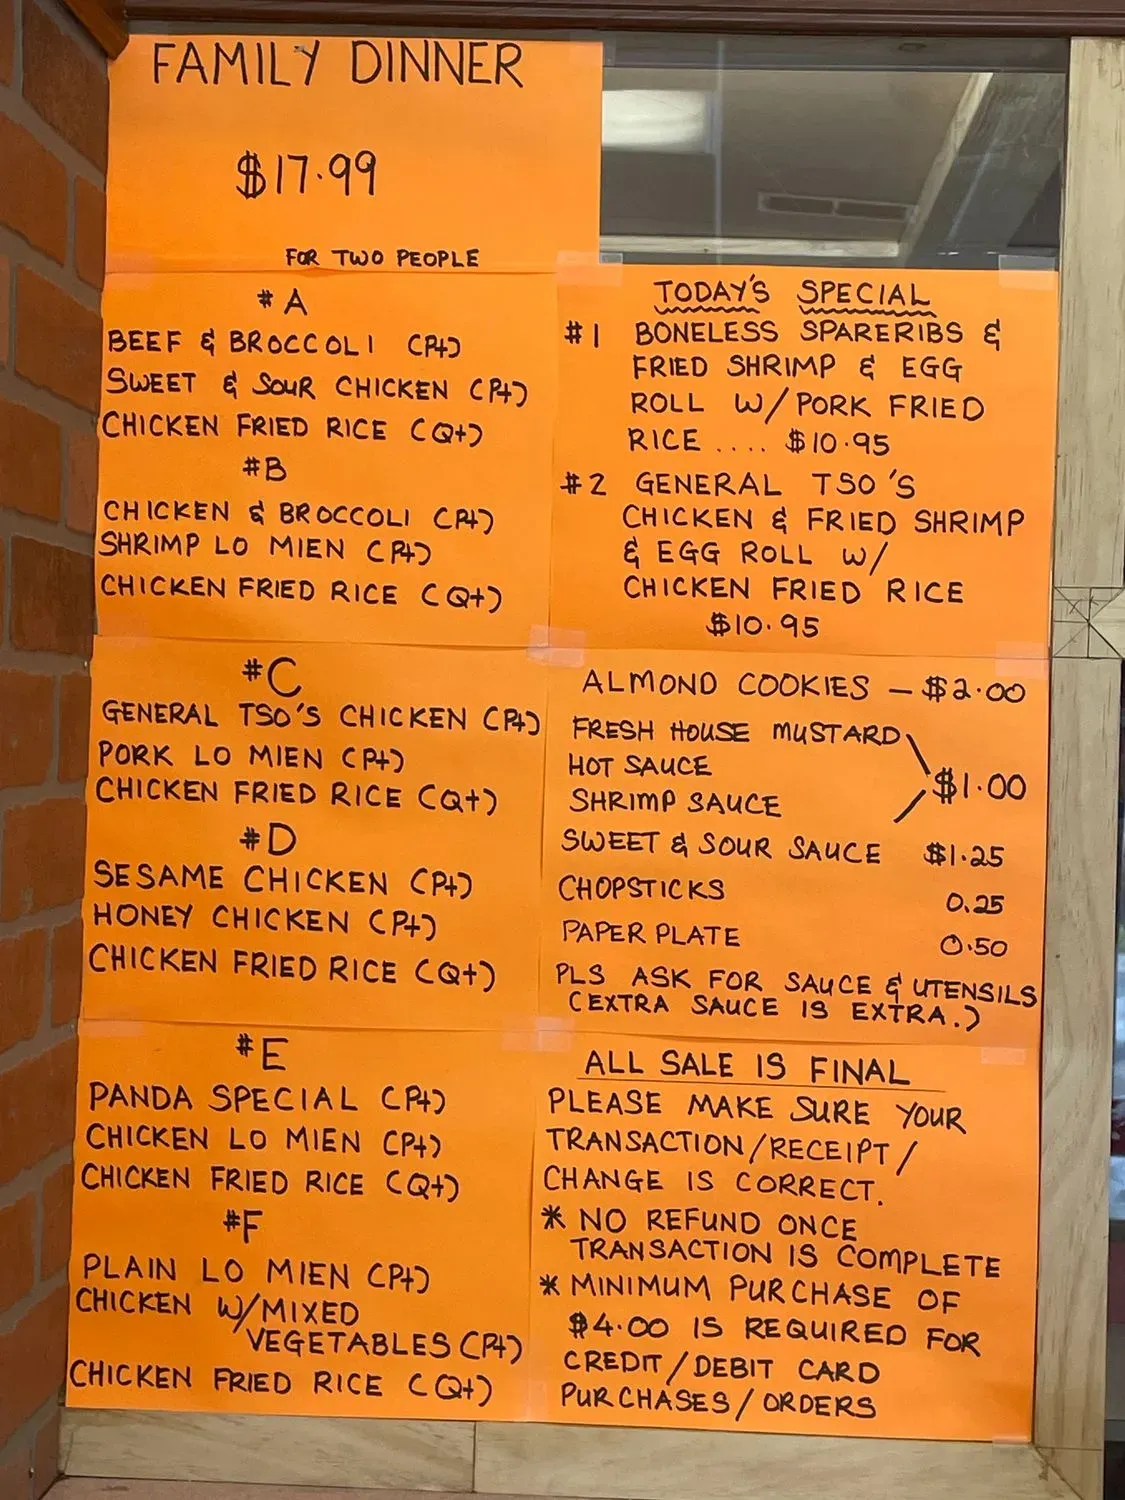 FAMILY DINNER
$17.99
FOR TWO PEOPLE
#A
BEEF & BROCCOLI (Pt)
SWEET & SOUR CHICKEN (Pt)
CHICKEN FRIED RICE (Qt)
#B
CHICKEN & BROCCOLI (Pt)
SHRIMP LO MIEN (Pt)
CHICKEN FRIED RICE (Qt)
#C
GENERAL TSO'S CHICKEN (Pt)
PORK LO MIEN (Pt)
CHICKEN FRIED RICE (Qt)
#D
SESAME CHICKEN (Pt)
HONEY CHICKEN (Pt)
CHICKEN FRIED RICE (Qt)
#E
PANDA SPECIAL (Pt)
CHICKEN LO MIEN (Pt)
CHICKEN FRIED RICE (Qt)
#F
PLAIN LO MIEN (Pt)
CHICKEN W/MIXED
VEGETABLES (Pt)
CHICKEN FRIED RICE (Qt)
TODAY'S SPECIAL
#1 BONELESS SPARERIBS &
FRIED SHRIMP & EGG
ROLL W/PORK FRIED
RICE .... $10.95
#2 GENERAL TSO'S
CHICKEN & FRIED SHRIMP
& EGG ROLL W/
CHICKEN FRIED RICE
$10.95
ALMOND COOKIES — $2.00
FRESH HOUSE MUSTARD
HOT SAUCE
$1.00
SHRIMP SAUCE
SWEET & SOUR SAUCE $1.25
CHOPSTICKS 0.25
PAPER PLATE 0.50
PLS ASK FOR SAUCE & UTENSILS
(EXTRA SAUCE IS EXTRA.)
ALL SALE IS FINAL
PLEASE MAKE SURE YOUR
TRANSACTION/RECEIPT/
CHANGE IS CORRECT.
* NO REFUND ONCE
TRANSACTION IS COMPLETE
* MINIMUM PURCHASE OF
$4.00 IS REQUIRED FOR
CREDIT/DEBIT CARD
PURCHASES/ORDERS